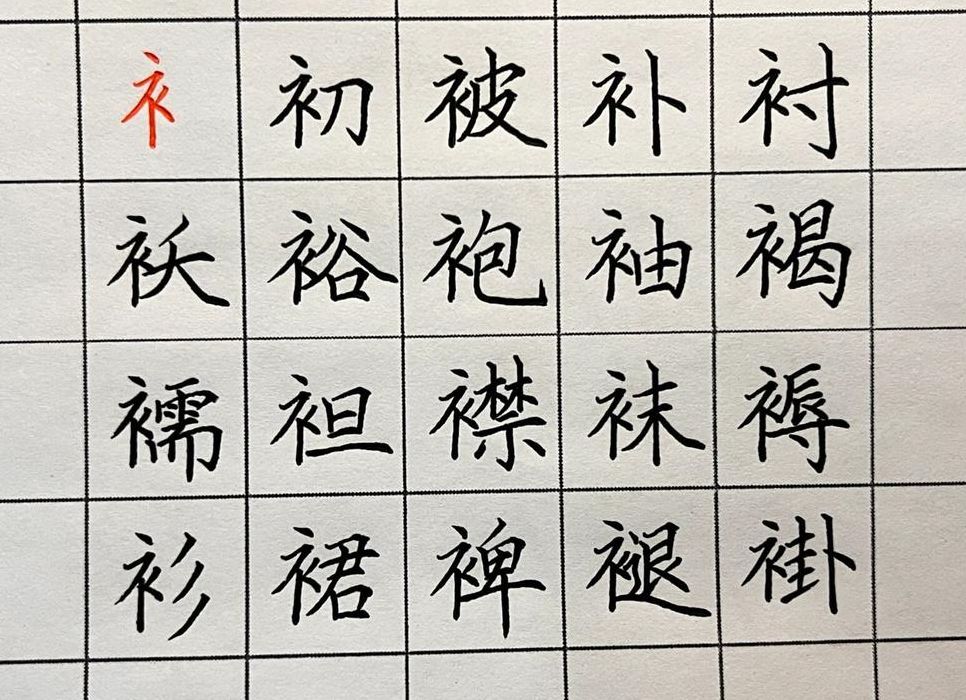 衤初被补衬
袄裕袍袖褐
襦袒襟袜褥
衫裙裨褪褂